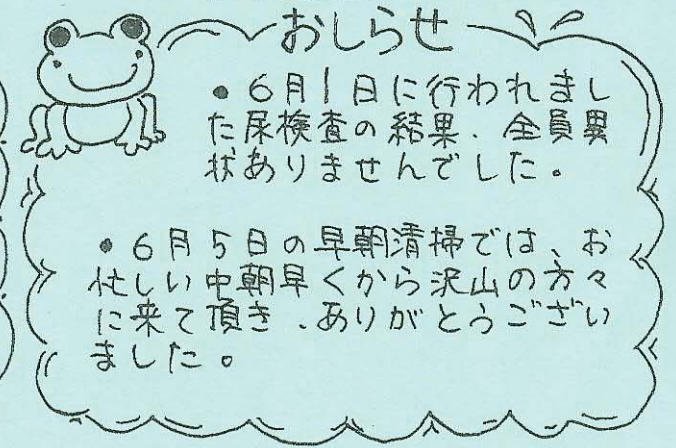 おしらせ
•6月1日に行われまし
た尿検査の結果、全員異
状ありませんでした。
•6月5日の早朝清掃では、お
忙しい中朝早くから沢山の方々
に来て頂き、ありがとうござい
ました。